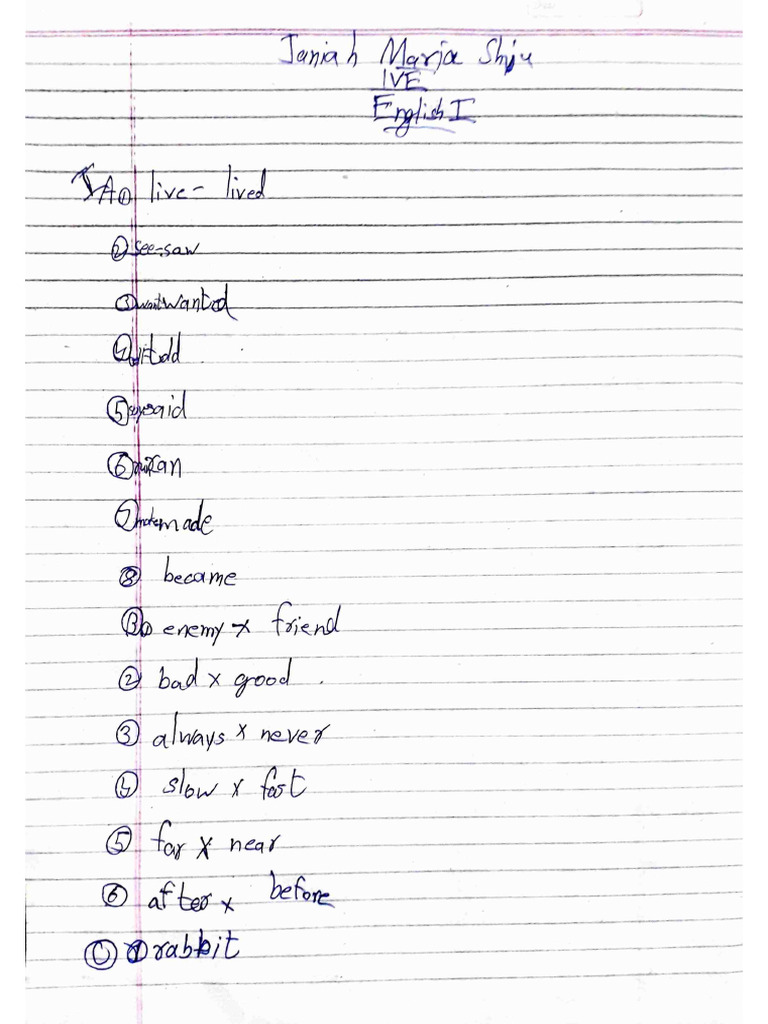 Janiah Maria Shiju
IVE
English I
I A① live - lived
② see-saw
③ want wanted
④ told
⑤ say said
⑥ run ran
⑦ make made
⑧ became
B① enemy x friend
② bad x good.
③ always x never
④ slow x fast
⑤ far x near
⑥ after x before
① rabbit